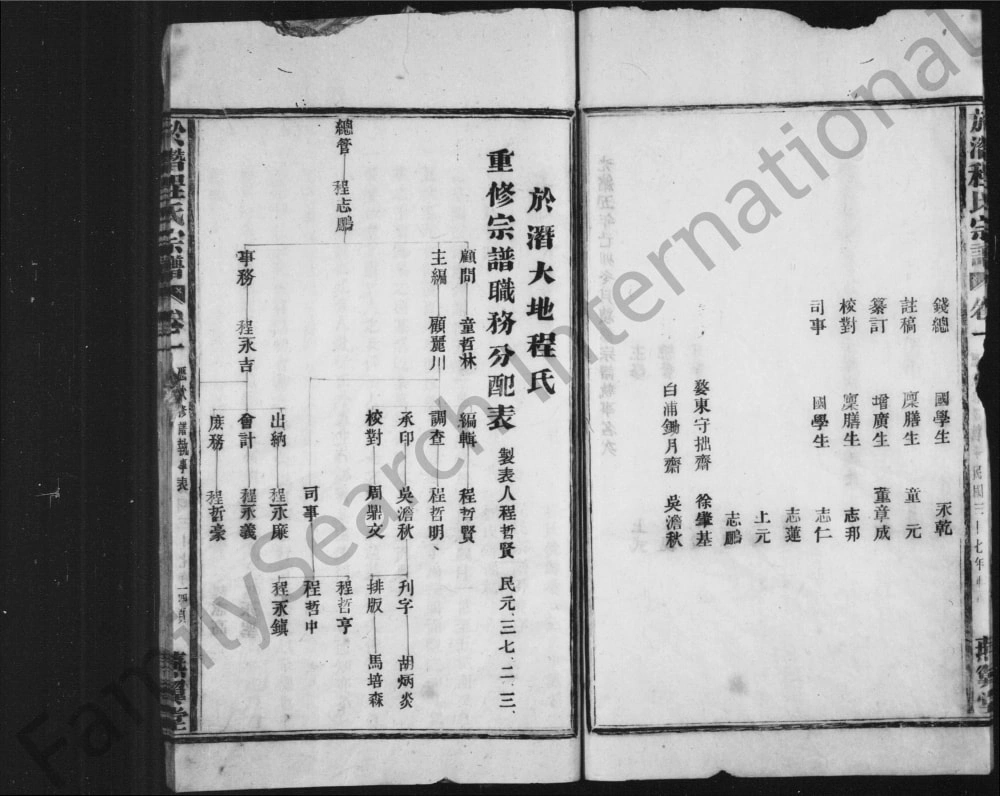 錢總 國學生 永乾
註稿 廩膳生 童元
纂訂 增廣生 董章成
校對 廩膳生 志邦
司事 國學生 志仁
志蓮
上元
志鵬
婺東守拙齋 徐肇基
白浦鋤月齋 吳澹秋
於潛大地程氏
重修宗譜職務分配表 製表人程哲賢 民元、三七、二、三、
總管 程志鵬
顧問 童哲林 編輯 程哲賢
主編 顧麗川 調查 程哲明、
承印 吳澹秋 刊字 胡炳炎
校對 周鼎文 排版 馬培森
司事 程哲亨
程哲中
程永鎮
事務 程永吉
出納 程永廉
會計 程永義
庶務 程哲豪
於潛程氏宗譜 卷一 歷次修譜執事表
於潛程氏宗譜 卷一 民國三十七年
FamilySearch International